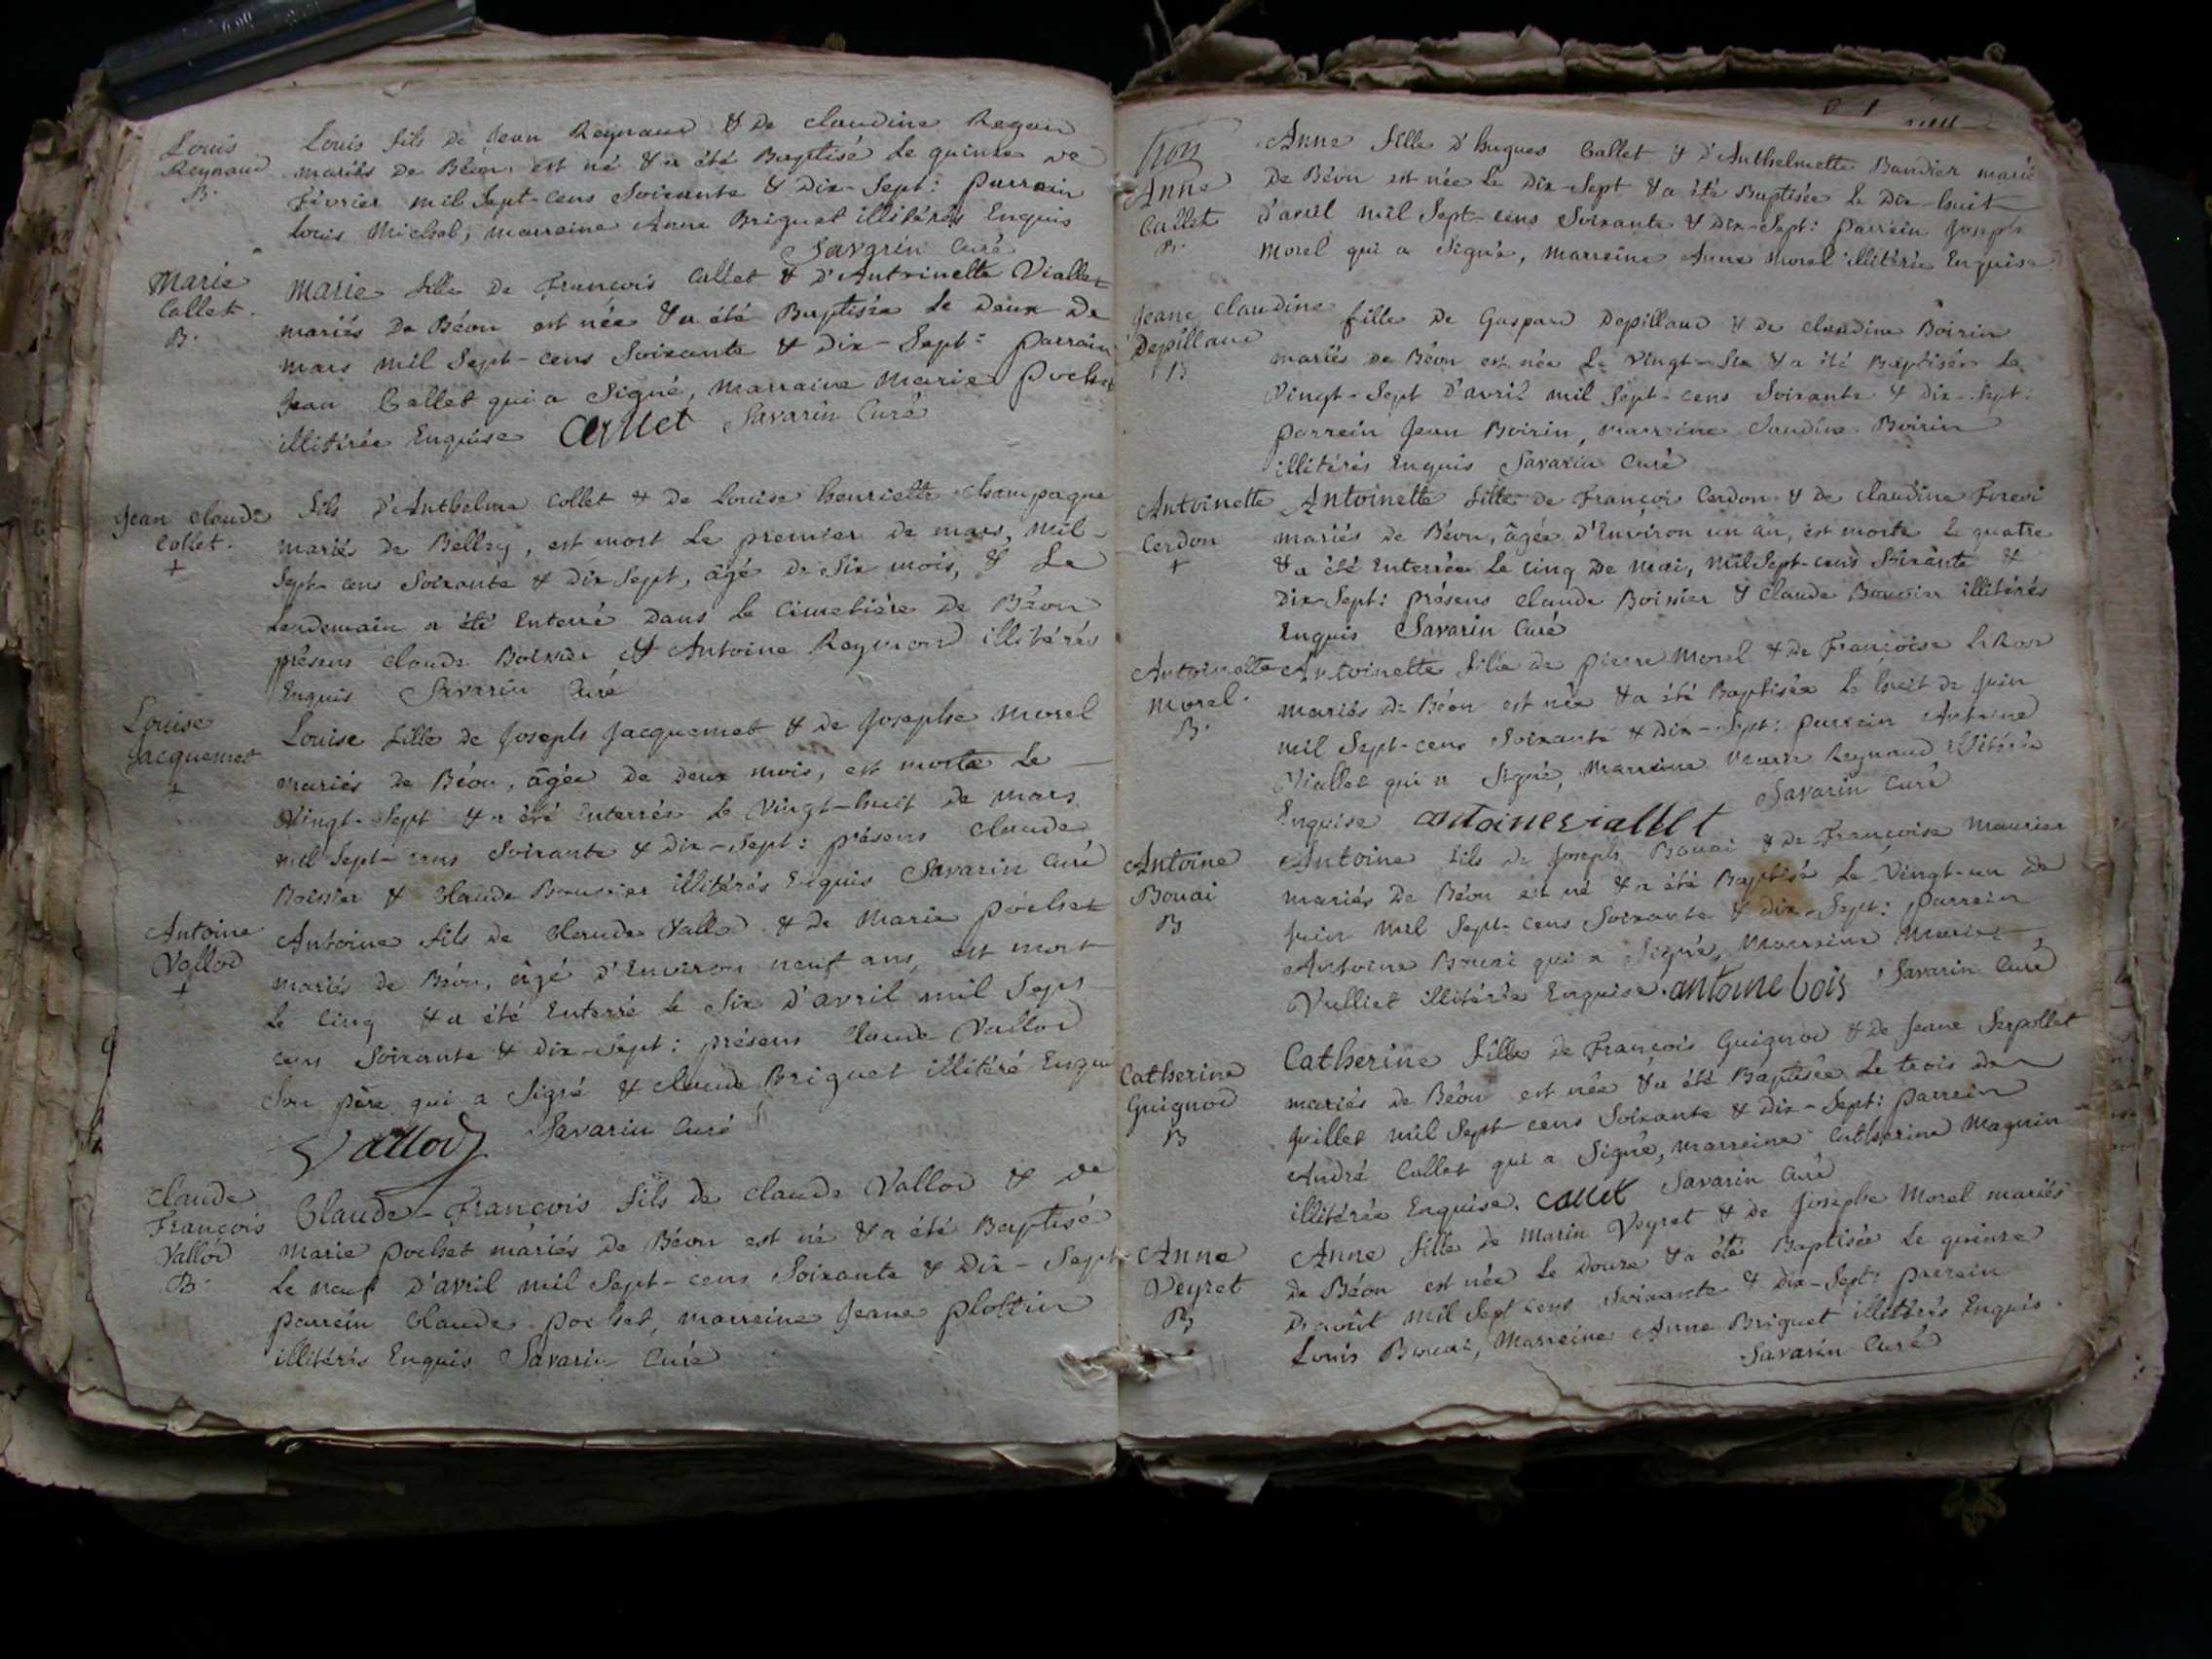 Louis
Reynaud
B.
Louis fils de Jean Reynaud & de Claudine
mariés de Béon est né & a été Baptisé Le quinze de
Février mil Sept-cens Soixante & Dix-Sept: parrein
Louis Michal; marreine Anne Briguet illitérés Enquis
Savarin Curé
Marie
Callet.
B.
Marie fille de François Callet & d'Antoinette Viallet
mariés de Béon est née & a été Baptisée Le Deux de
mars mil Sept-cens Soixante & Dix-Sept: parrain
Jean Callet qui a Signé, marraine Marie Pochet
illitérée Enquise Callet Savarin Curé
Jean Claude
Collet.
+
fils d'Anthelme Collet & de Louise henriette Champagne
mariés de Belley, est mort Le premier de mars, mil-
Sept-cens Soixante & dix Sept, âgé de Six mois, & Le
Lendemain a été Enterré dans Le Cimetière de Béon
présens Claude Boissier & Antoine Reymond illitérés
Enquis Savarin Curé
Louise
Jacquemet
+
Louise fille de Joseph Jacquemet & de Josephe Morel
mariés de Béon, âgée de deux mois, est morte Le
Vingt-Sept & a été Enterrée Le Vingt-huit de mars
mil Sept-cens Soixante & Dix-Sept: présens Claude
Boissier & Claude Bouvier illitérés Enquis Savarin Curé
Antoine
Vallod
+
Antoine fils de Claude Vallod & de Marie pochet
mariés de Béon, âgé d'Environ neuf ans, est mort
Le Cinq & a été Enterré le Six d'avril mil Sept-
cens Soixante & Dix-Sept: présens Claude Vallod
Son père qui a Signé & Claude Briguet illitéré Enquis
Vallod Savarin Curé
Claude
François
Vallod
B.
Claude-François fils de Claude Vallod & de
Marie pochet mariés de Béon est né & a été Baptisé
Le neuf d'avril mil Sept-cens Soixante & Dix-Sept
parrein Claude pochet, marreine Jeane plottin
illitérés Enquis Savarin Curé
Anne
Callet
B.
Anne fille d'hugues Callet & d'Anthelmette Baudier mariés
de Béon est née Le Dix-Sept & a été Baptisée Le Dix-huit
d'avril mil Sept-cens Soixante & Dix-Sept: parrein Joseph
Morel qui a Signé, marreine Anne Morel illitérée Enquise
Jeane Claudine
Depillaud
B
fille de Gaspard Depillaud & de Claudine Boirin
mariés de Béon est née Le Vingt-Six & a été Baptisée Le
Vingt-Sept d'avril mil Sept-cens Soixante & Dix-Sept:
parrein Jean Boirin, marreine Claudine Boirin
illitérés Enquis Savarin Curé
Antoinette
Cerdon
+
Antoinette fille de François Cerdon & de Claudine
mariés de Béon, âgée d'Environ un an, est morte Le quatre
& a été Enterrée Le Cinq de Mai, mil Sept-cens Soixante &
Dix-Sept: présens Claude Boissier & Claude Bouvier illitérés
Enquis Savarin Curé
Antoinette
Morel.
B.
Antoinette fille de pierre Morel & de Françoise
mariés de Béon est née & a été Baptisée Le huit de Juin
mil Sept-cens Soixante & dix-Sept: parrein Antoine
Viallet qui a Signé, Marreine Marie Reynaud illitérée
Enquise antoine viallet Savarin Curé
Antoine
Bouai
B
Antoine fils de Joseph Bouai & de Françoise Meurier
mariés de Béon est né & a été Baptisé Le Vingt-un de
Juin mil Sept-cens Soixante & dix-Sept: parrein
Antoine Bouai qui a Signé, Marreine Marie
Vulliet illitérée Enquise. antoine bois Savarin Curé
Catherine
Guignod
B
Catherine fille de François Guignod & de Jeane Serpollet
mariés de Béon est née & a été Baptisée Le trois de
Juillet mil Sept-cens Soixante & Dix-Sept: parrein
André Callet qui a Signé, marreine Catherine Magnin
illitérée Enquise. Callet Savarin Curé
Anne
Veyret
B
Anne fille de Marin Veyret & de Josephe Morel mariés
de Béon est née Le Douze & a été Baptisée Le quinze
D'août mil Sept cens Soixante & dix-Sept: parrein
Louis Bouai, Marreine Anne Briguet illitérés Enquis.
Savarin Curé